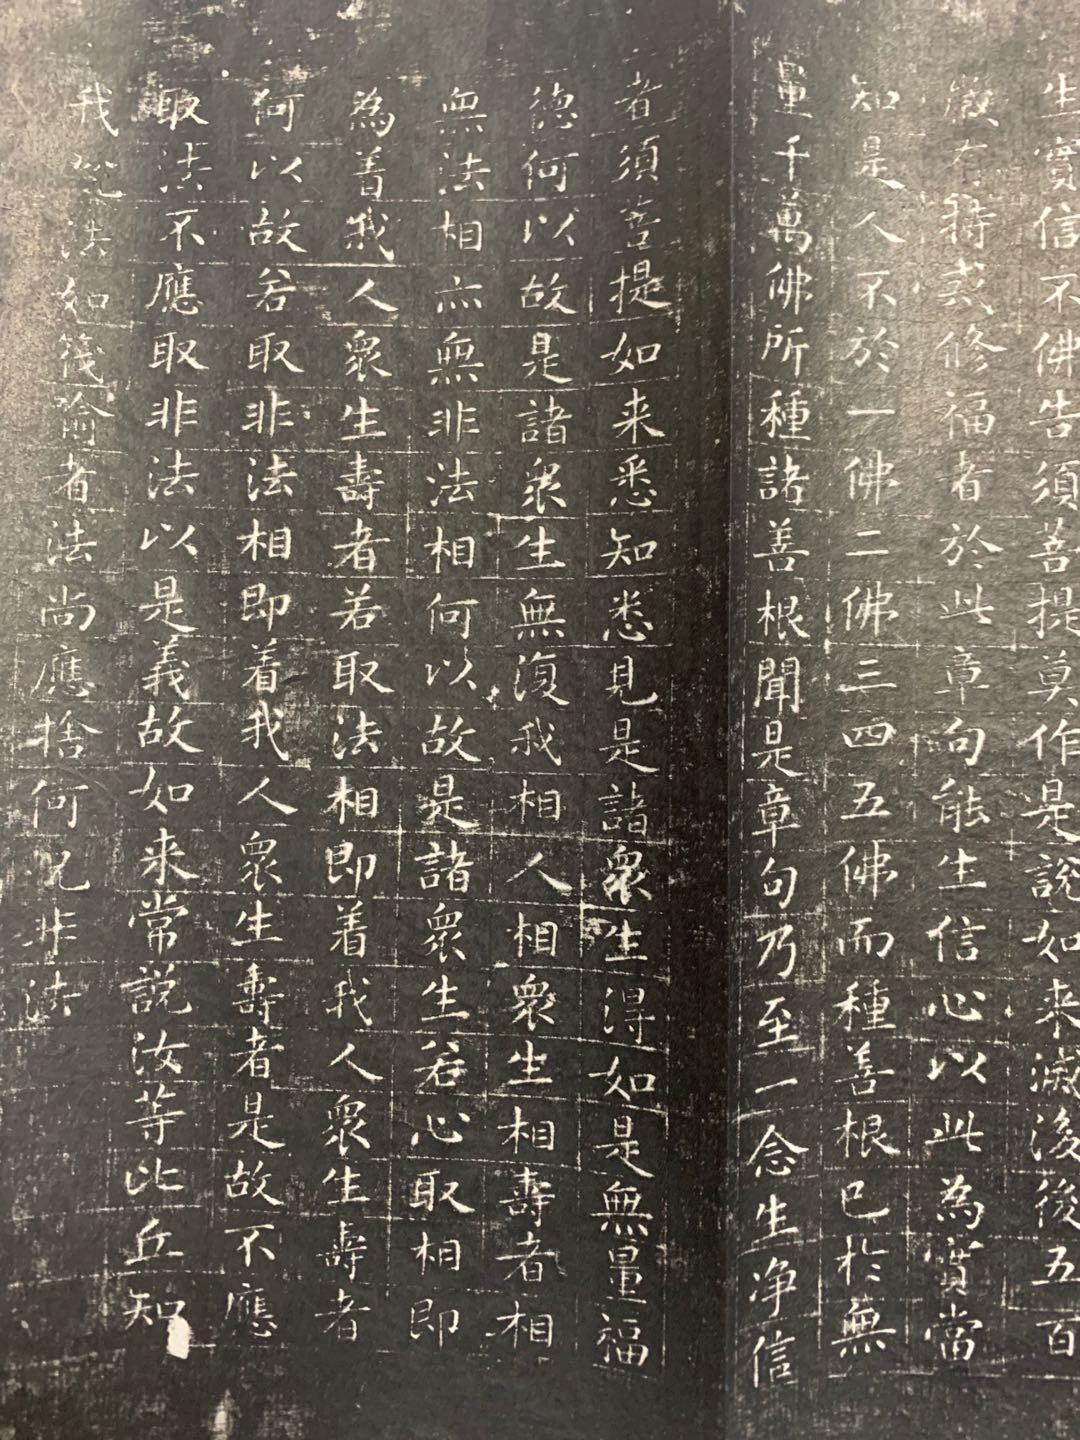 生實信不佛告須菩提莫作是說如来滅後後五百
歲有持戒修福者於此章句能生信心以此為實當
知是人不於一佛二佛三四五佛而種善根已於無
量千萬佛所種諸善根聞是章句乃至一念生净信
者須菩提如来悉知悉見是諸衆生得如是無量福
德何以故是諸衆生無復我相人相衆生相壽者相
無法相亦無非法相何以故是諸衆生若心取相即
為着我人衆生壽者若取法相即着我人衆生壽者
何以故若取非法相即着我人衆生壽者是故不應
取法不應取非法以是義故如来常說汝等比丘知
我說法如筏喻者法尚應捨何况非法